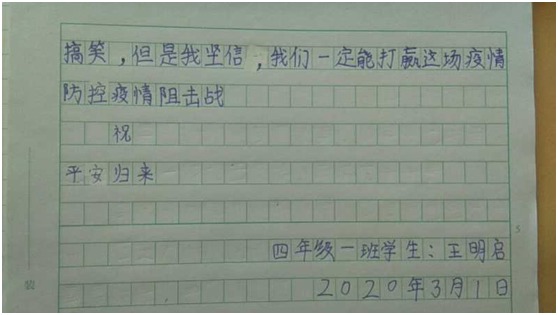 搞笑，但是我坚信，我们一定能打赢这场疫情
防控疫情阻击战
祝
平安归来
四年级一班学生：王明启
2020年3月1日
装
5